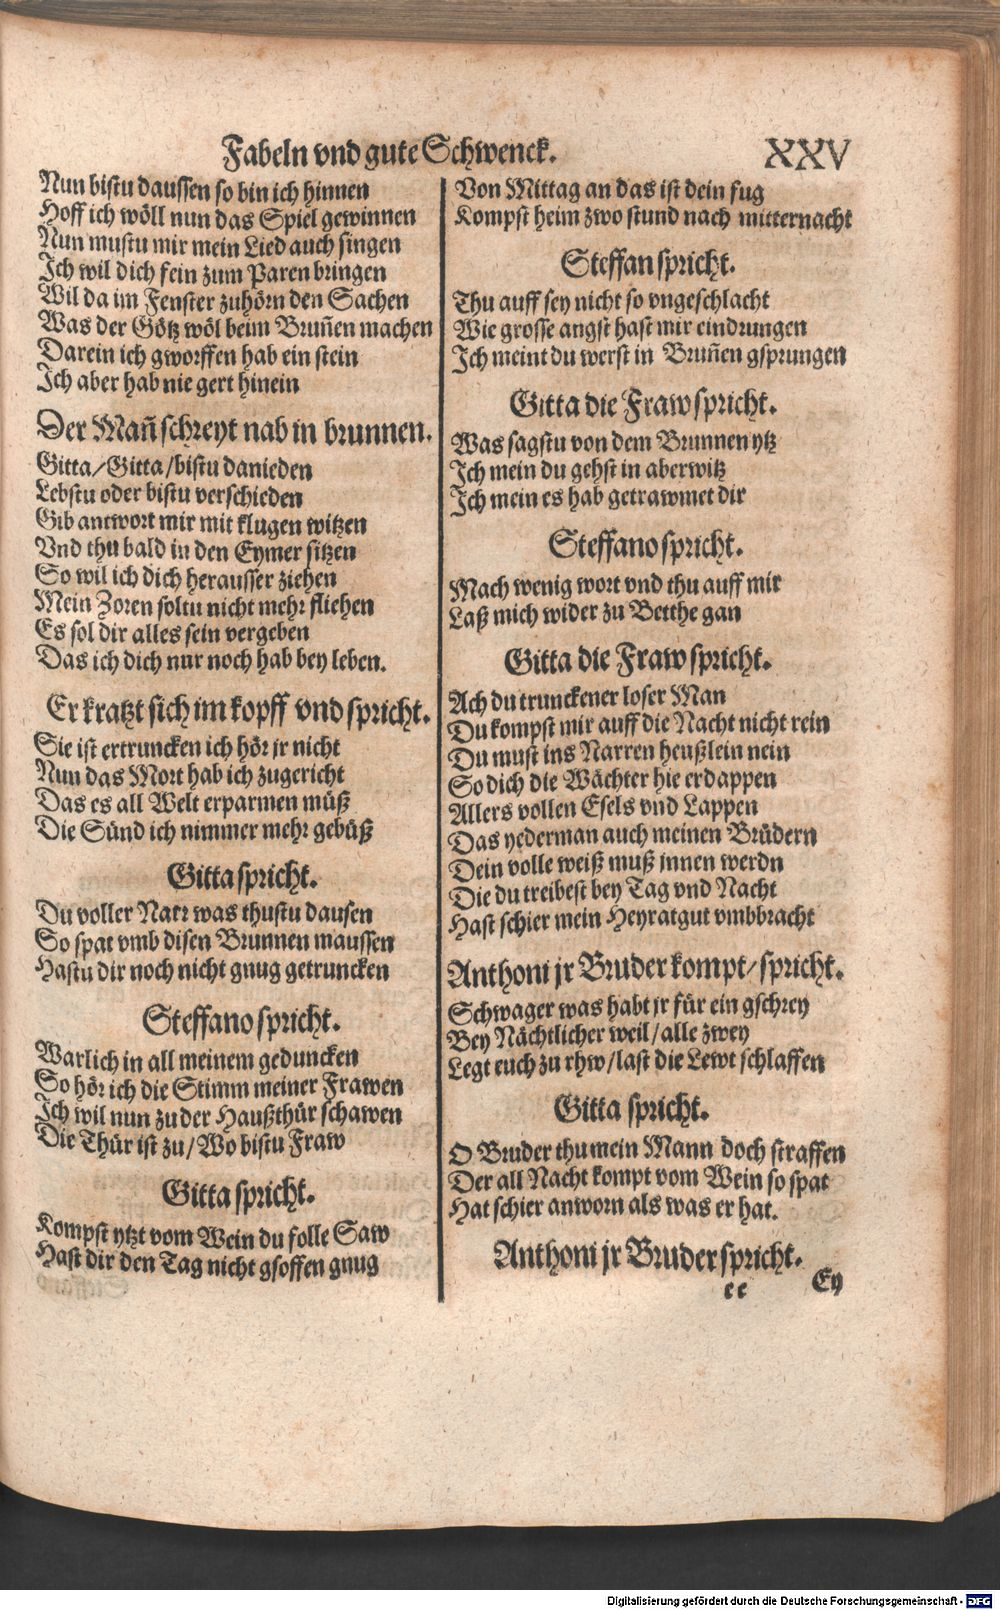 Fabeln vnd gute Schwenck. XXV
Nun bistu daussen so bin ich hinnen
Hoff ich wöll nun das Spiel gewinnen
Nun mustu mir mein Lied auch singen
Ich wil dich fein zum Paren bringen
Wil da im Fenster zuhörn den Sachen
Was der Götz wöl beim Brun̄en machen
Darein ich gworffen hab ein stein
Ich aber hab nie gert hinein
Der Man̄ schreyt nab in brunnen.
Gitta/Gitta/bistu danieden
Lebstu oder bistu verschieden
Gib antwort mir mit klugen witzen
Vnd thu bald in den Eymer sitzen
So wil ich dich herausser ziehen
Mein Zoren soltu nicht mehr fliehen
Es sol dir alles sein vergeben
Das ich dich nur noch hab bey leben.
Er kratzt sich im kopff vnd spricht.
Sie ist ertruncken ich hör jr nicht
Nun das Mort hab ich zugericht
Das es all Welt erparmen müß
Die Sünd ich nimmer mehr gebüß
Gitta spricht.
Du voller Narr was thustu dausen
So spat vmb disen Brunnen maussen
Hastu dir noch nicht gnug getruncken
Steffano spricht.
Warlich in all meinem geduncken
So hör ich die Stimm meiner Frawen
Ich wil nun zu der Haußthür schawen
Die Thür ist zu/Wo bistu Fraw
Gitta spricht.
Kompst ytzt vom Wein du folle Saw
Hast dir den Tag nicht gsoffen gnug
Von Mittag an das ist dein fug
Kompst heim zwo stund nach mitternacht
Steffan spricht.
Thu auff sey nicht so vngeschlacht
Wie grosse angst hast mir eindrungen
Ich meint du werst in Brun̄en gsprungen
Gitta die Fraw spricht.
Was sagstu von dem Brunnen ytz
Ich mein du gehst in aberwitz
Ich mein es hab getrawmet dir
Steffano spricht.
Mach wenig wort vnd thu auff mir
Laß mich wider zu Betthe gan
Gitta die Fraw spricht.
Ach du trunckener loser Man
Du kompst mir auff die Nacht nicht rein
Du must ins Narren heußlein nein
So dich die Wächter hie erdappen
Allers vollen Esels vnd Lappen
Das yederman auch meinen Brüdern
Dein volle weiß muß innen werdn
Die du treibest bey Tag vnd Nacht
Hast schier mein Heyratgut vmbbracht
Anthoni jr Bruder kompt/spricht.
Schwager was habt jr für ein gschrey
Bey Nächtlicher weil/alle zwey
Legt euch zu rhw/last die Lewt schlaffen
Gitta spricht.
O Bruder thu mein Mann doch straffen
Der all Nacht kompt vom Wein so spat
Hat schier anworn als was er hat.
Anthoni jr Bruder spricht.
ee Ey
Digitalisierung gefördert durch die Deutsche Forschungsgemeinschaft - DFG